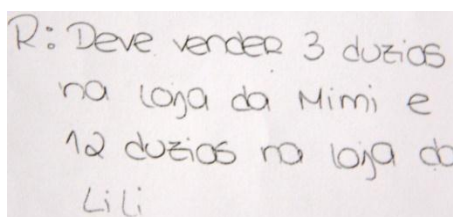 R: Deve vender 3 duzias
na loja da Mimi e
12 duzias na loja do
Lili